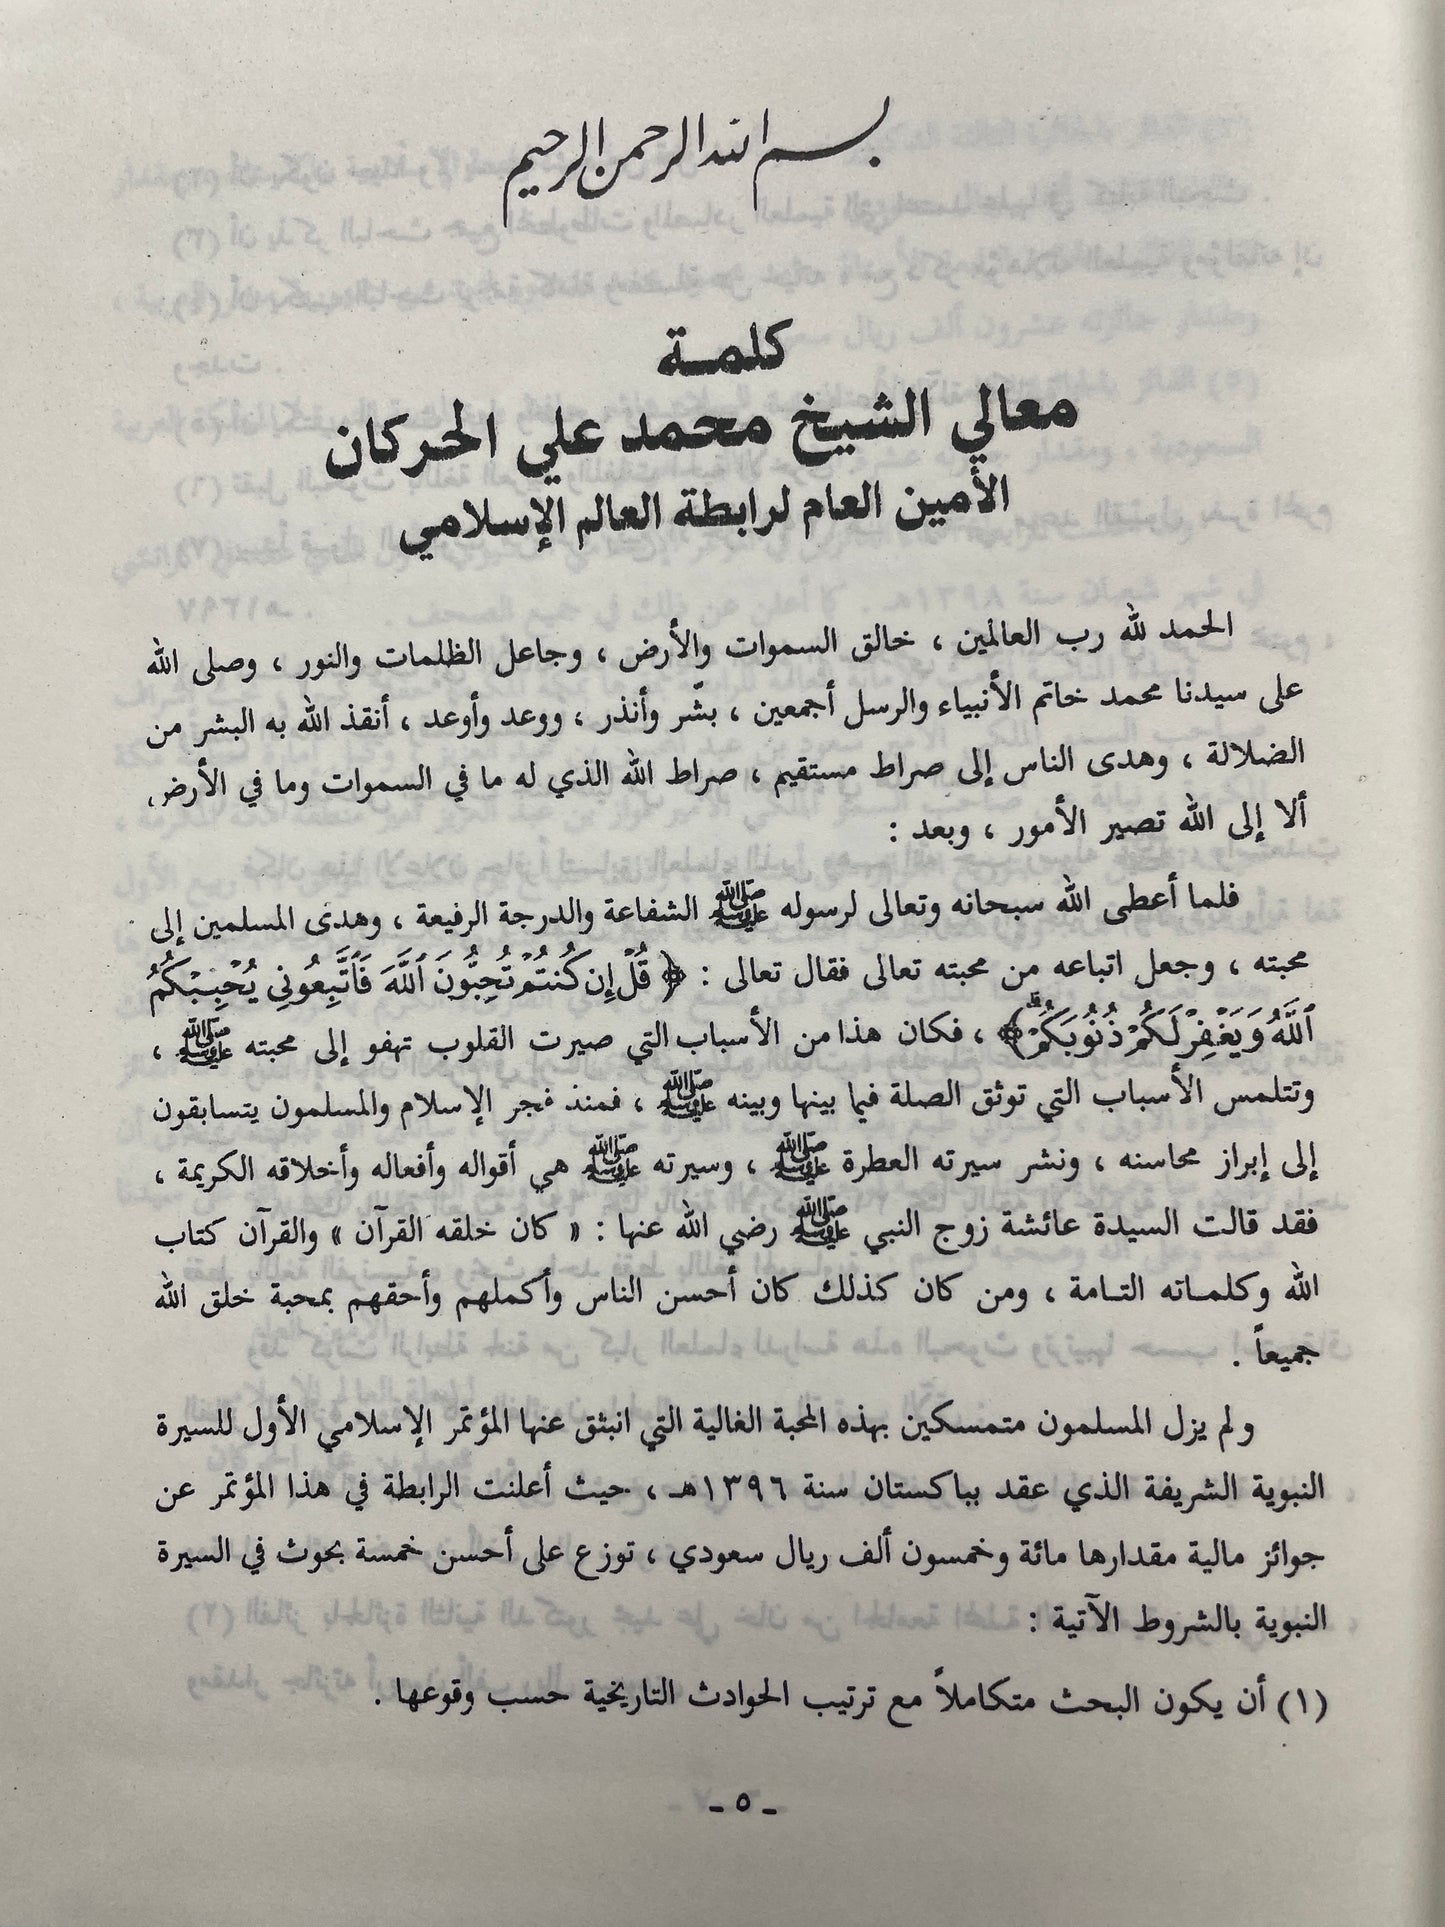 بسم الله الرحمن الرحيم
كلمـــة
معالي الشيخ محمد علي الحركان
الأمين العام لرابطة العالم الإسلامي
الحمد لله رب العالمين ، خالق السموات والأرض ، وجاعل الظلمات والنور ، وصلى الله
على سيدنا محمد خاتم الأنبياء والرسل أجمعين ، بشّر وأنذر ، ووعد وأوعد ، أنقذ الله به البشر من
الضلالة ، وهدى الناس إلى صراط مستقيم ، صراط الله الذي له ما في السموات وما في الأرض ،
ألا إلى الله تصير الأمور ، وبعد :
فلما أعطى الله سبحانه وتعالى لرسوله ﷺ الشفاعة والدرجة الرفيعة ، وهدى المسلمين إلى
محبته ، وجعل اتباعه من محبته تعالى فقال تعالى : ﴿ قُلْ إِن كُنتُمْ تُحِبُّونَ ٱللَّهَ فَٱتَّبِعُونِي يُحْبِبْكُمُ
ٱللَّهُ وَيَغْفِرْ لَكُمْ ذُنُوبَكُمْ ۗ﴾ ، فكان هذا من الأسباب التي صيرت القلوب تهفو إلى محبته ﷺ ،
وتتلمس الأسباب التي توثق الصلة فيما بينها وبينه ﷺ ، فمنذ فجر الإسلام والمسلمون يتسابقون
إلى إبراز محاسنه ، ونشر سيرته العطرة ﷺ ، وسيرته ﷺ هي أقواله وأفعاله وأخلاقه الكريمة ،
فقد قالت السيدة عائشة زوج النبي ﷺ رضي الله عنها : « كان خلقه القرآن » والقرآن كتاب
الله وكلمـاته التـامة ، ومن كان كذلك كان أحسن الناس وأكملهم وأحقهم بمحبة خلق الله
جميعاً .
ولم يزل المسلمون متمسكين بهذه المحبة الغالية التي انبثق عنها المؤتمر الإسلامي الأول للسيرة
النبوية الشريفة الذي عقد بباكستان سنة ١٣٩٦هـ ، حيث أعلنت الرابطة في هذا المؤتمر عن
جوائز مالية مقدارها مائة وخمسون ألف ريال سعودي ، توزع على أحسن خمسة بحوث في السيرة
النبوية بالشروط الآتية :
(١) أن يكون البحث متكاملاً مع ترتيب الحوادث التاريخية حسب وقوعها .
ـ ٥ ـ